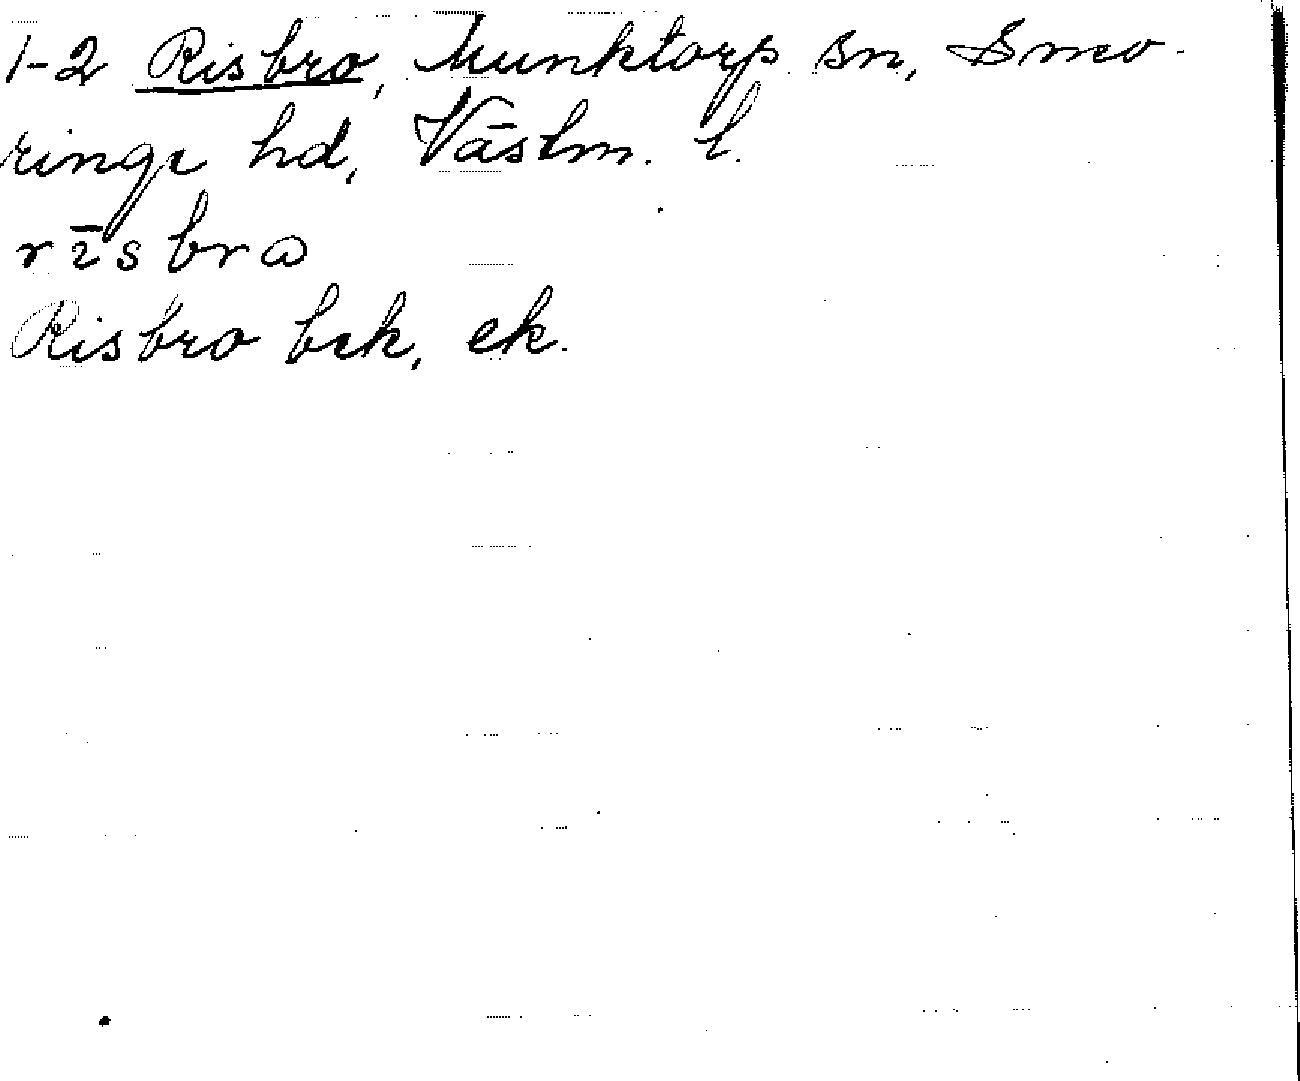 1-2 Risbro, Munktorp sn, Snev-
ringe hd, Västm. l.
rīsbrω
Risbro bek, ek.